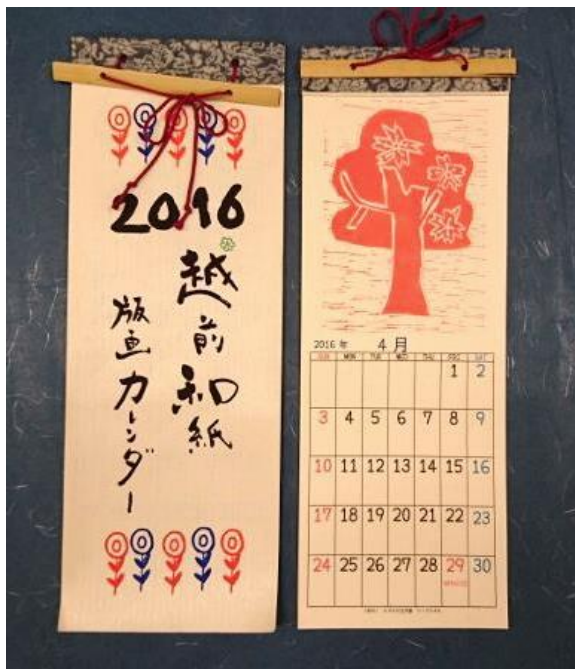 2016
越前和紙
版画カレンダー
2016 年 4月
SUN MON TUE WED THU FRI SAT
1 2
3 4 5 6 7 8 9
10 11 12 13 14 15 16
17 18 19 20 21 22 23
24 25 26 27 28 29 30